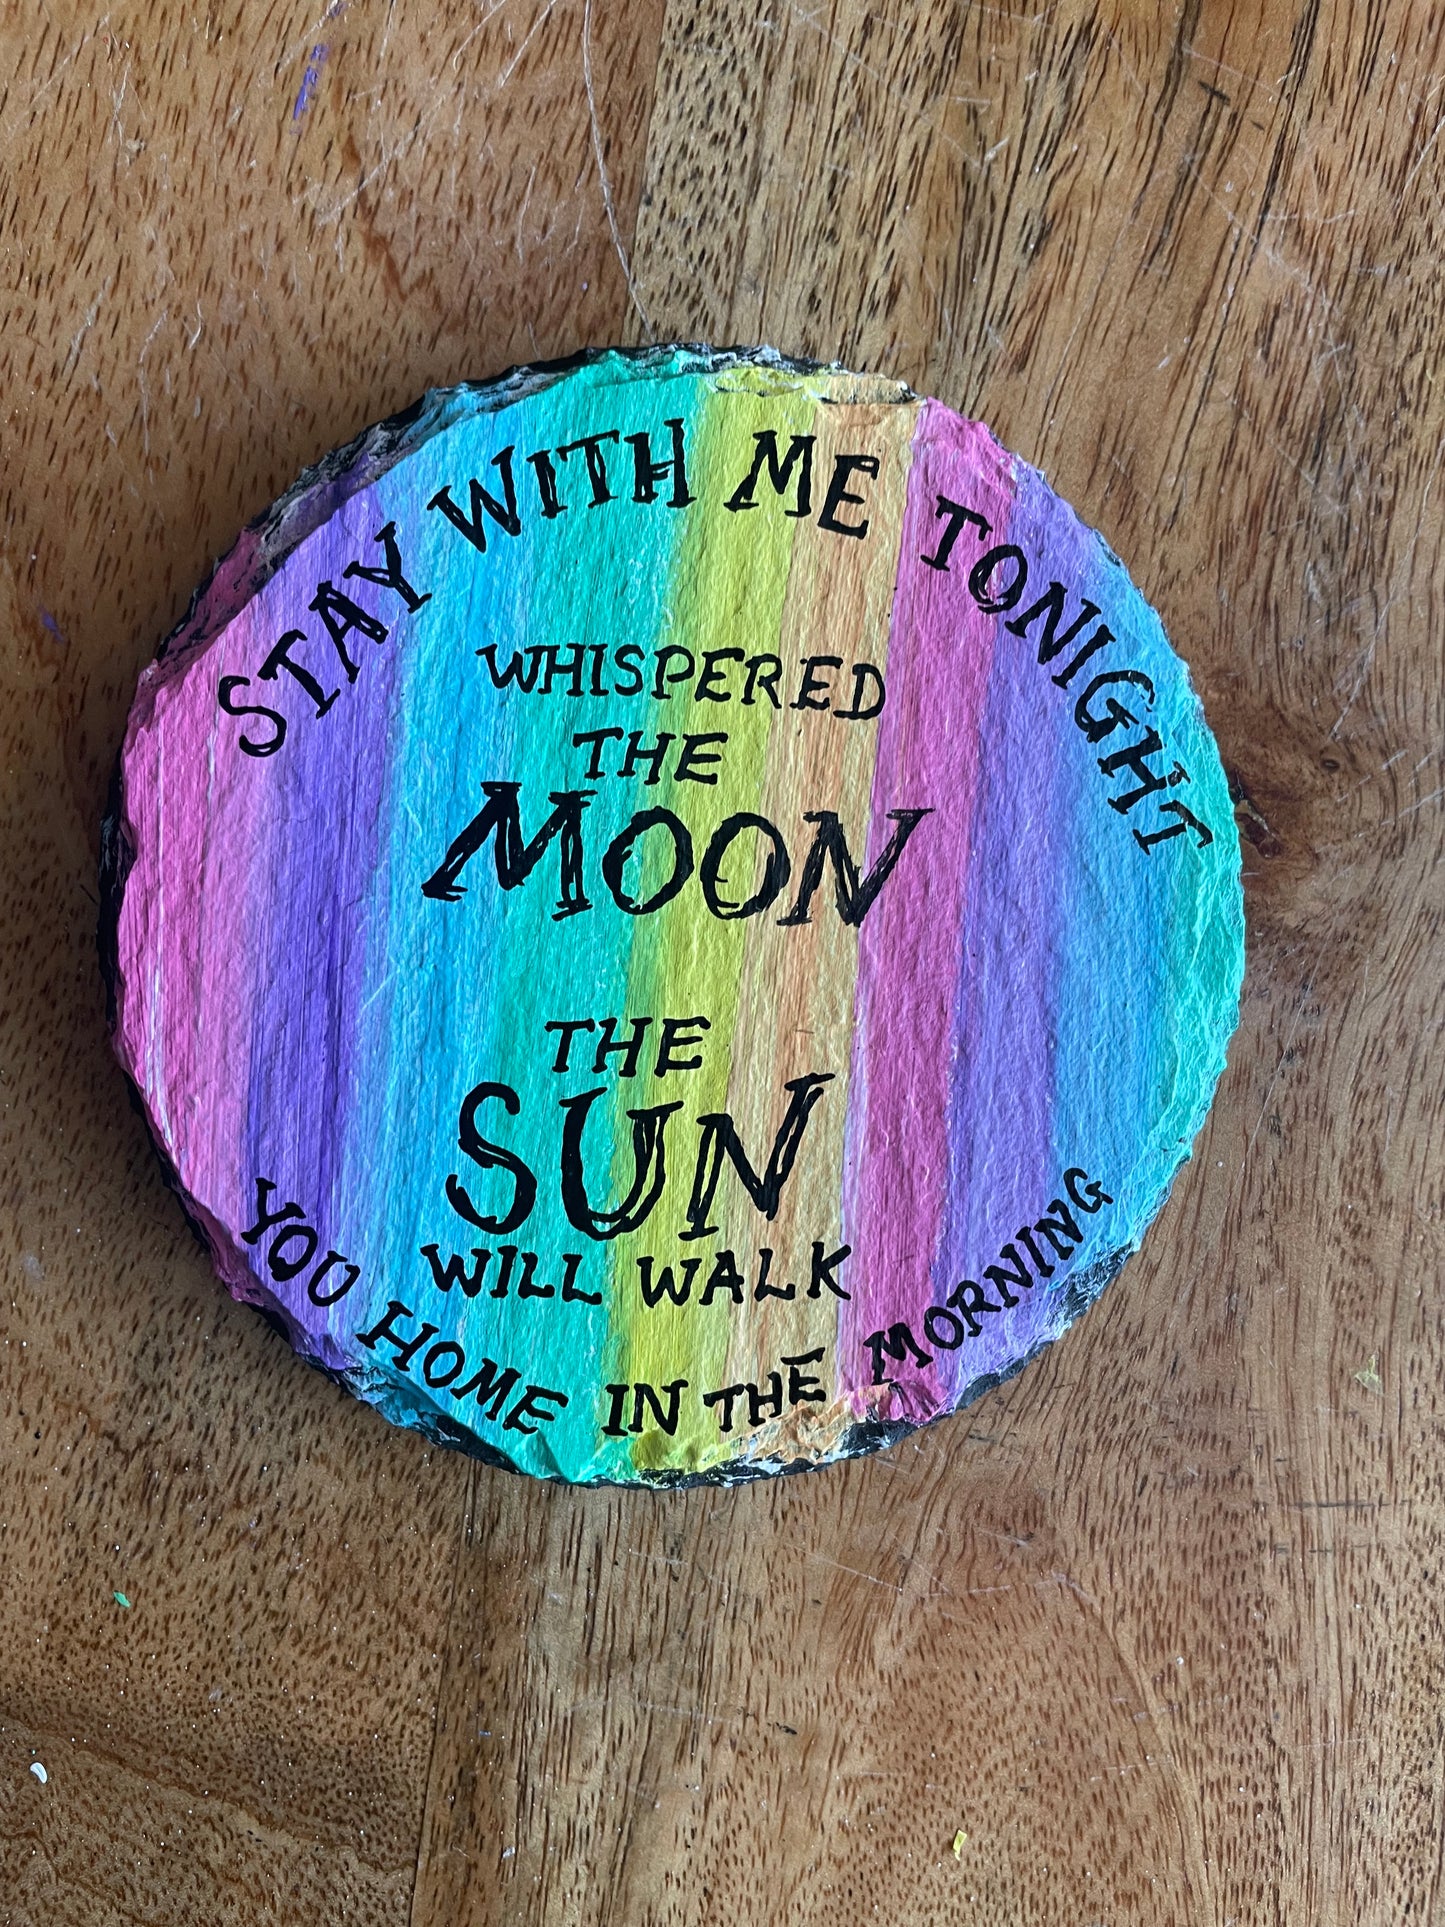 STAY WITH ME TONIGHT
WHISPERED
THE
MOON
THE
SUN
WILL WALK
YOU HOME IN THE MORNING